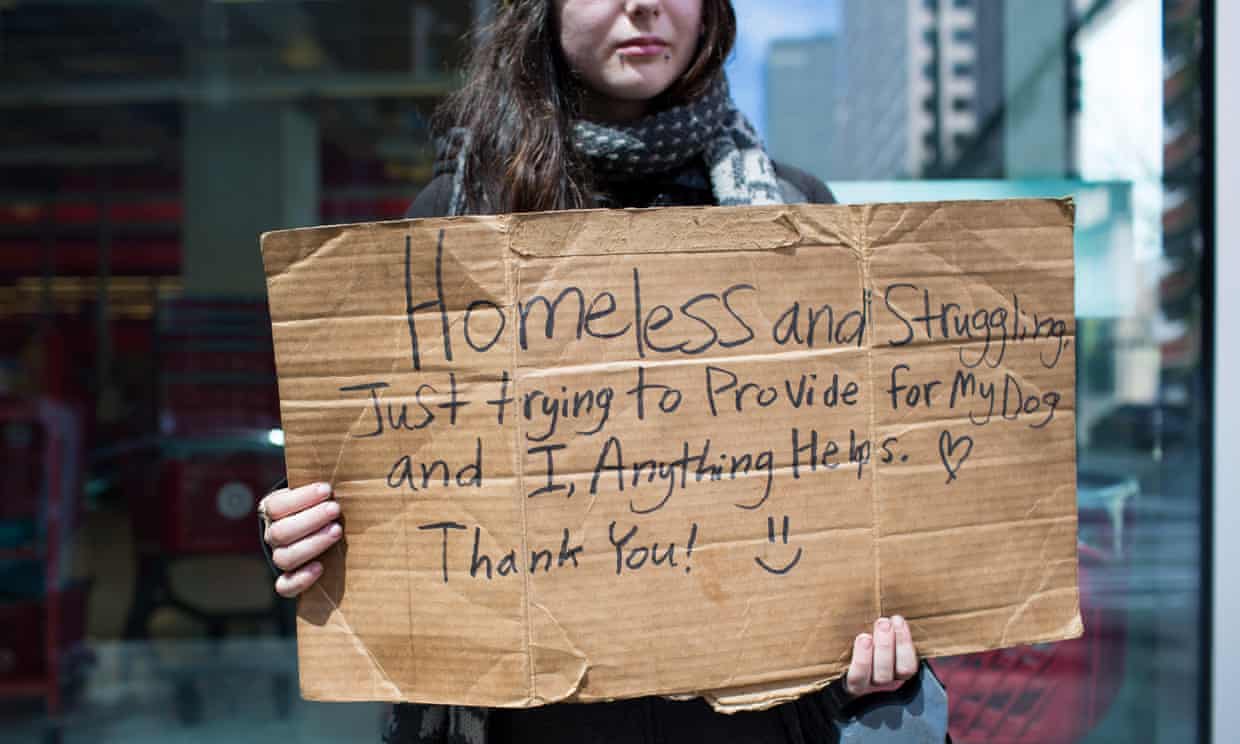 Homeless and Struggling,
Just trying to Provide for My Dog
and I, Anything Helps. ♡
Thank You! :)